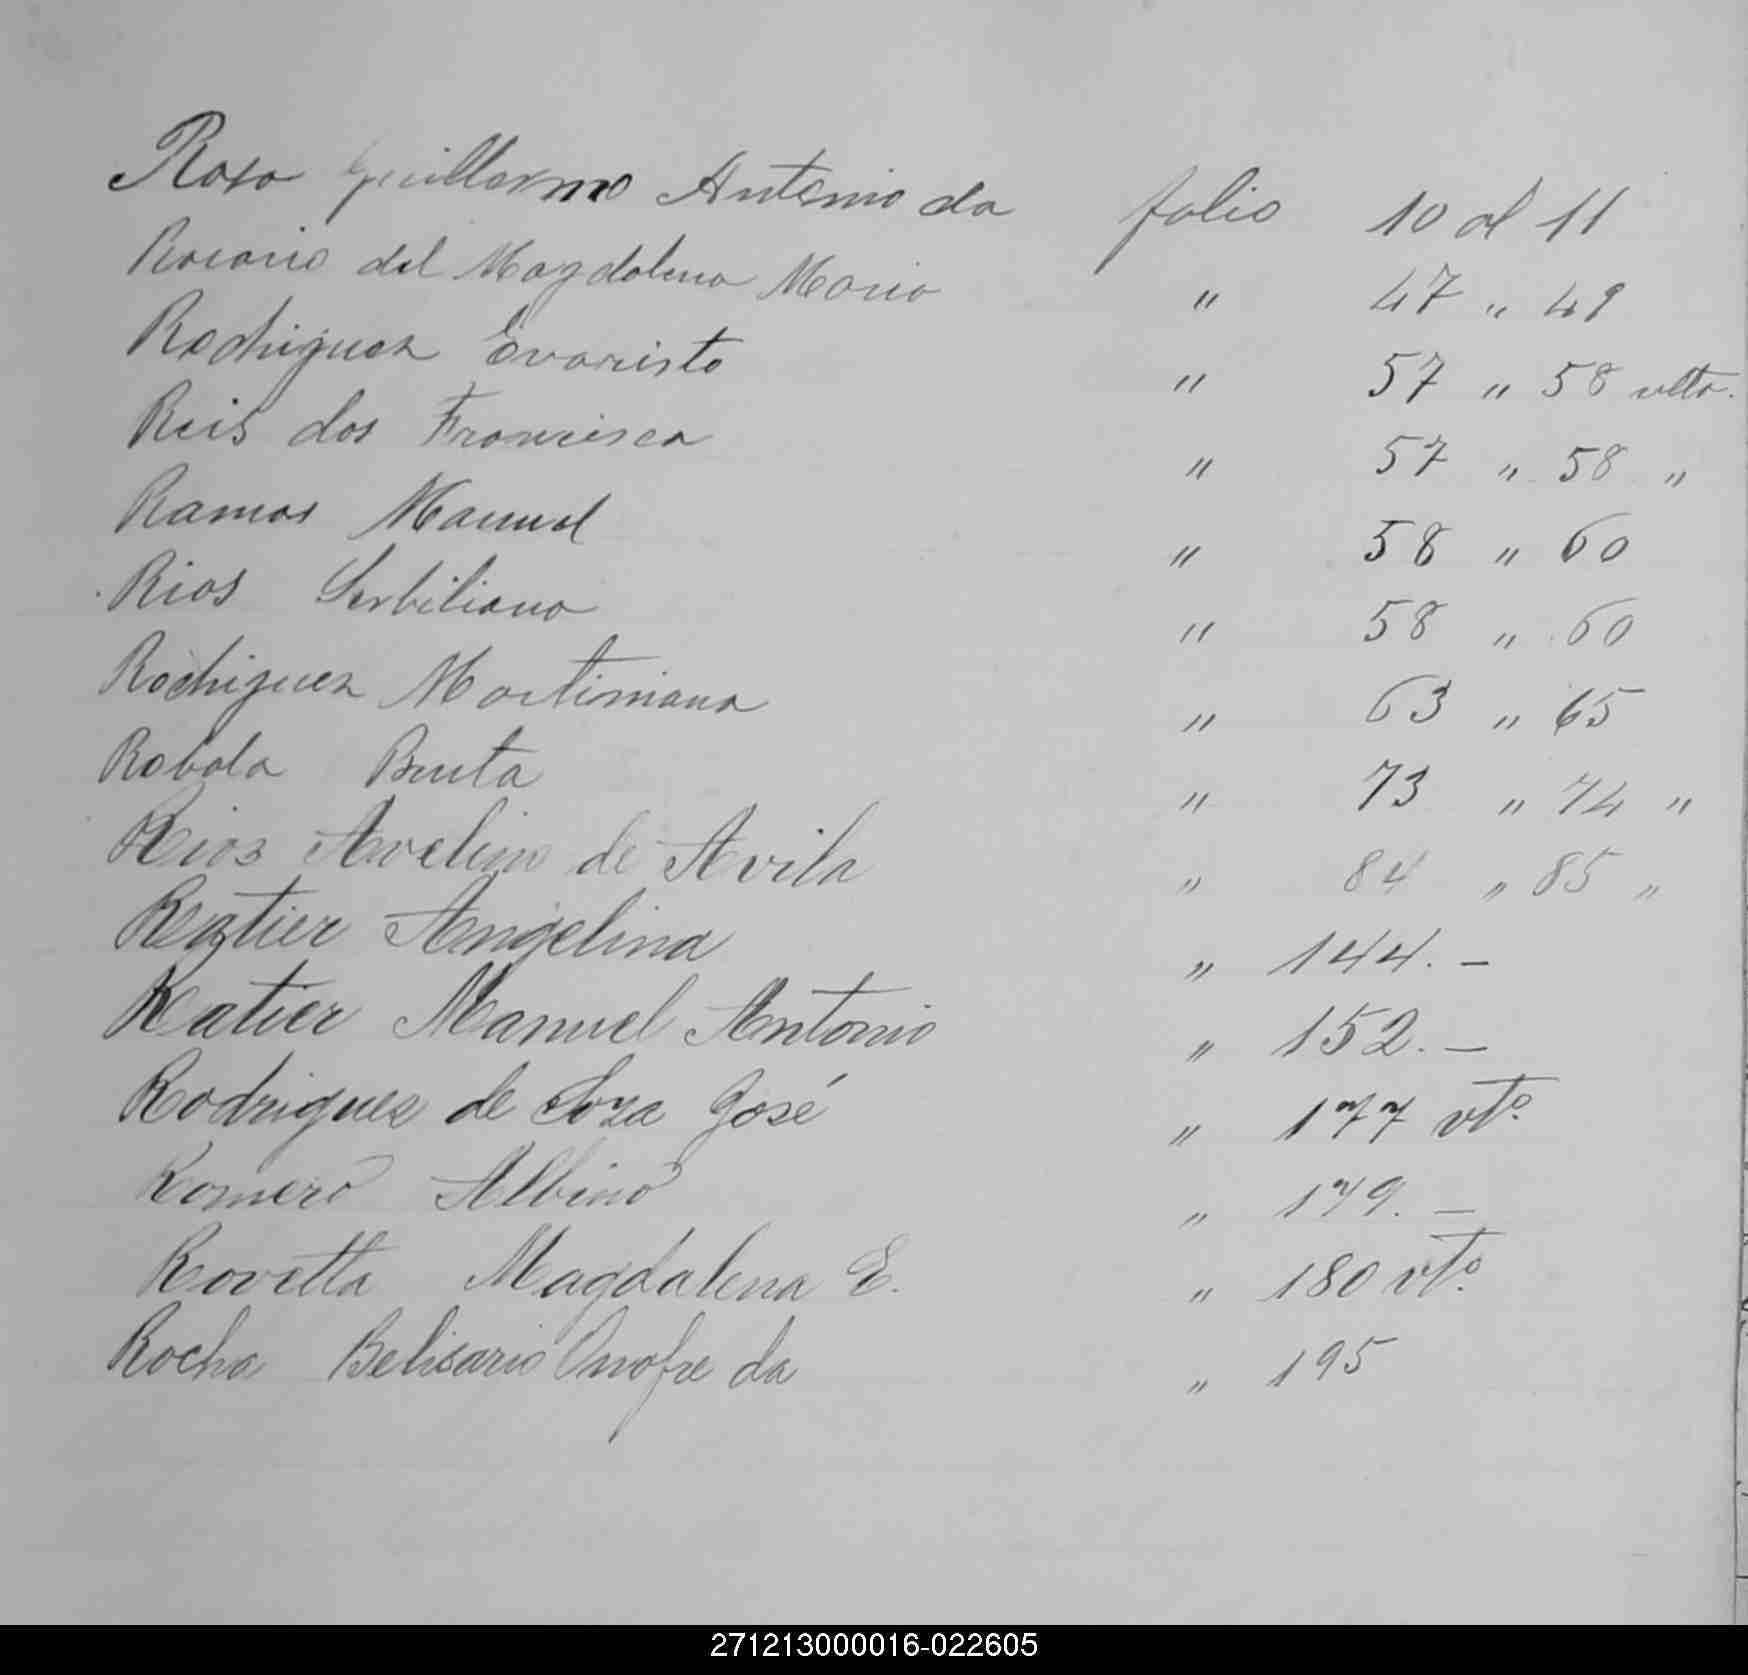 Rosa Guillermo Antonio da folio 10 al 11
Rosario del Magdalena Maria " 47 " 49
Rodriguez Evaristo " 57 " 58 vlto.
Reis dos Francisca " 57 " 58 "
Ramos Manuel " 58 " 60
Rios Serbiliano " 58 " 60
Rodriguez Martiniana " 63 " 65
Robala Benta " 73 " 74 "
Rios Avelino de Avila " 84 " 85 "
Ratier Angelina " 144. –
Ratier Manuel Antonio " 152. –
Rodrigues de Soza José " 177 vto.
Romero Albino " 179. –
Rovetta Magdalena E. " 180 vto.
Rocha Belisario Onofre da " 195
271213000016-022605